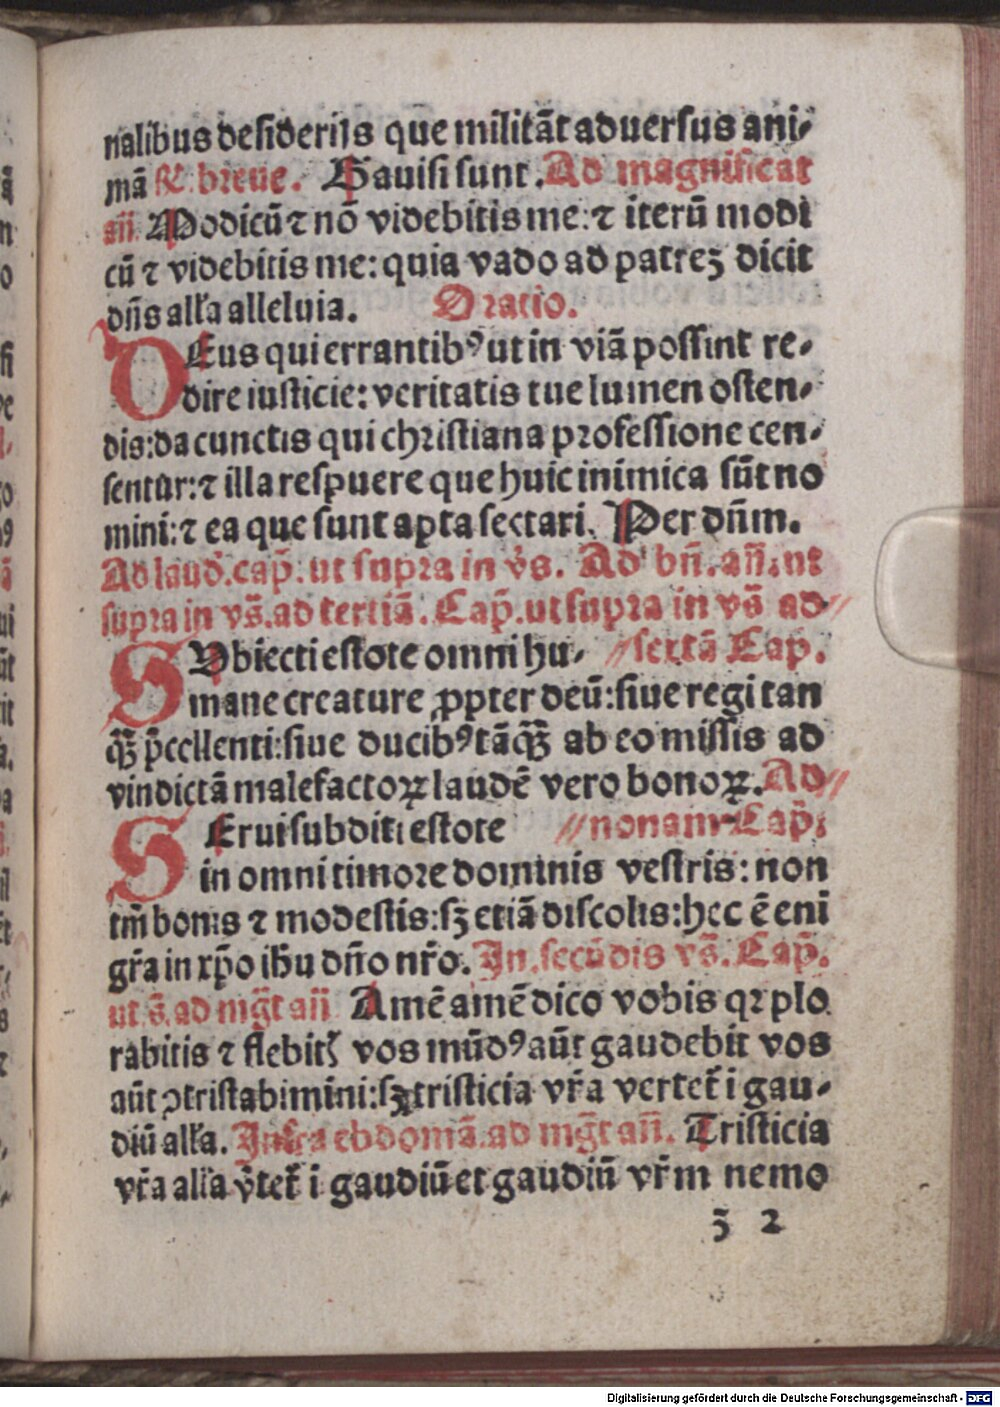 nalibus desiderijs que militāt aduersus ani⸗
mā R. breue. Gauisi sunt. Ad magnificat
añ Modicū ⁊ nō videbitis me: ⁊ iterū modi
cū ⁊ videbitis me: quia vado ad patreʒ dicit
dñs alľa alleluia. Oratio.
DEus qui errantibꝰ ut in viā possint re⸗
dire iusticie: veritatis tue lumen osten⸗
dis: da cunctis qui christiana professione cen⸗
sentur: ⁊ illa respuere que huic inimica sūt no
mini: ⁊ ea que sunt apta sectari. Per dñm.
Ad laud̄. cap̄. ut supra in v̄s. Ad bñ. añ. ut
supra in vs̄. ad tertiā. Cap̄. ut supra in vs̄ ad //
SUbiecti estote omni hu⸗ // sextā Cap.
mane creature ꝓpter deū: siue regi tan
qꝫ p̄cellenti: siue ducibꝰ tāqꝫ ab eo missis ad
vindictā malefactoꝝ laudē vero bonoꝝ. Ad //
SErui subditi estote // nonam Cap̄.
in omni timore dominis vestris: non
tm̄ bonis ⁊ modestis: sꝫ etiā discolis: hec ē eni
gr̄a in xp̄o ihū dño nr̄o. In secūdis vs̄. Cap̄.
ut s̄. ad mḡt añ Amē amē dico vobis qꝛ plo
rabitis ⁊ flebitꝭ vos mūdꝰ aūt gaudebit vos
aūt ꝯtristabimini: sꝫ tristicia vr̄a vertet̄ i gau⸗
diū alľa. Infra ebdomā. ad mḡt añ. Tristicia
vr̄a alľa v̄tet̄ i gaudiū et gaudiū vr̄m nemo
ʒ̄ 2
Digitalisierung gefördert durch die Deutsche Forschungsgemeinschaft - DFG